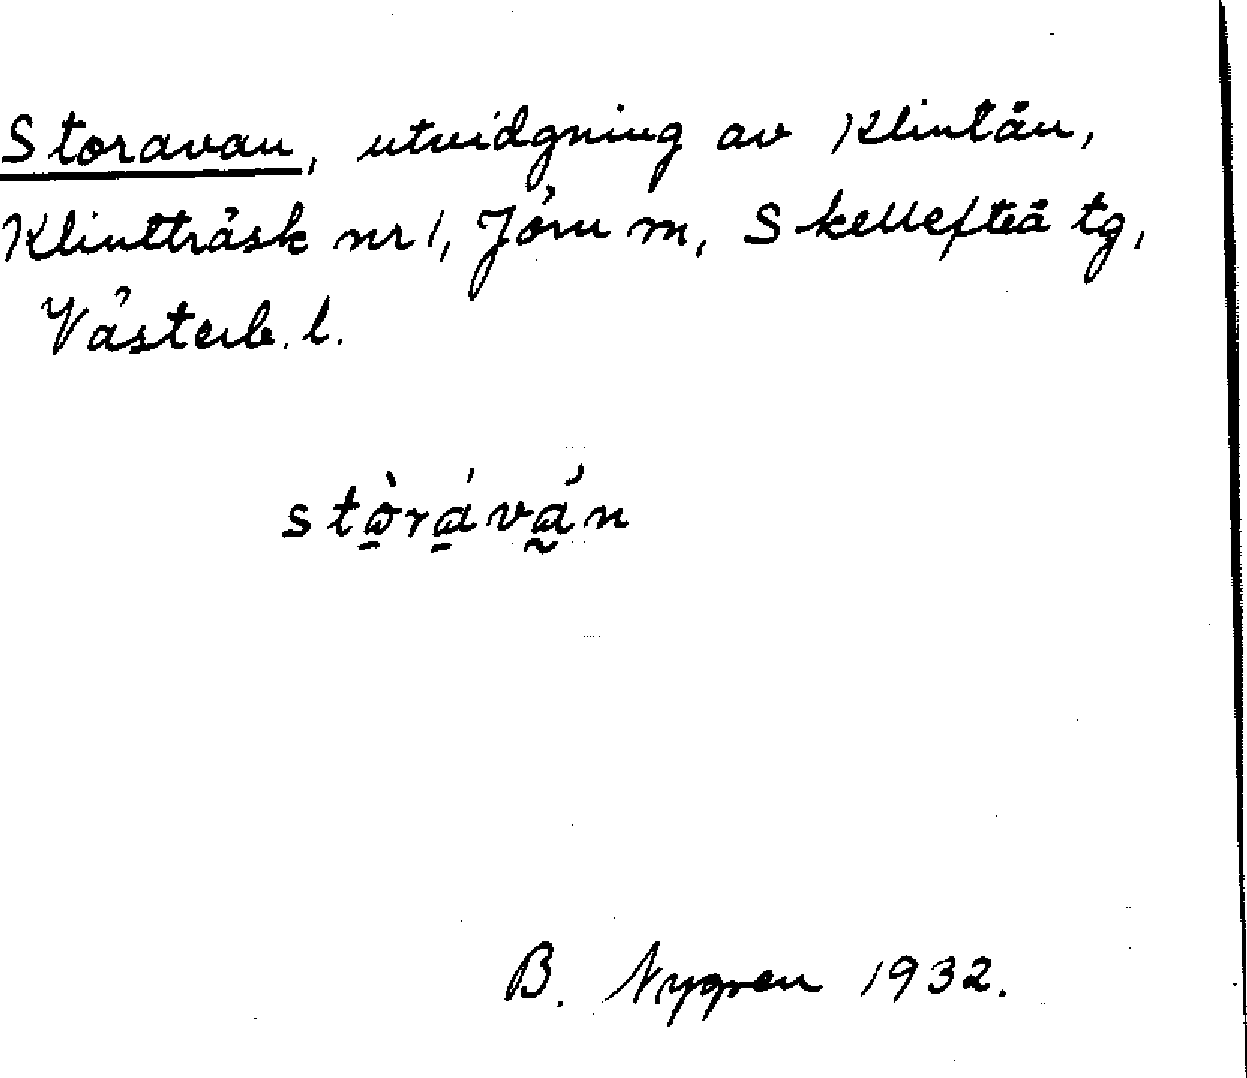 Storavan, utvidgning av Klintån,
Klintträsk nr 1, Jörn m, Skellefteå tg,
Västerb. l.
stòráván
B. Nygren 1932.